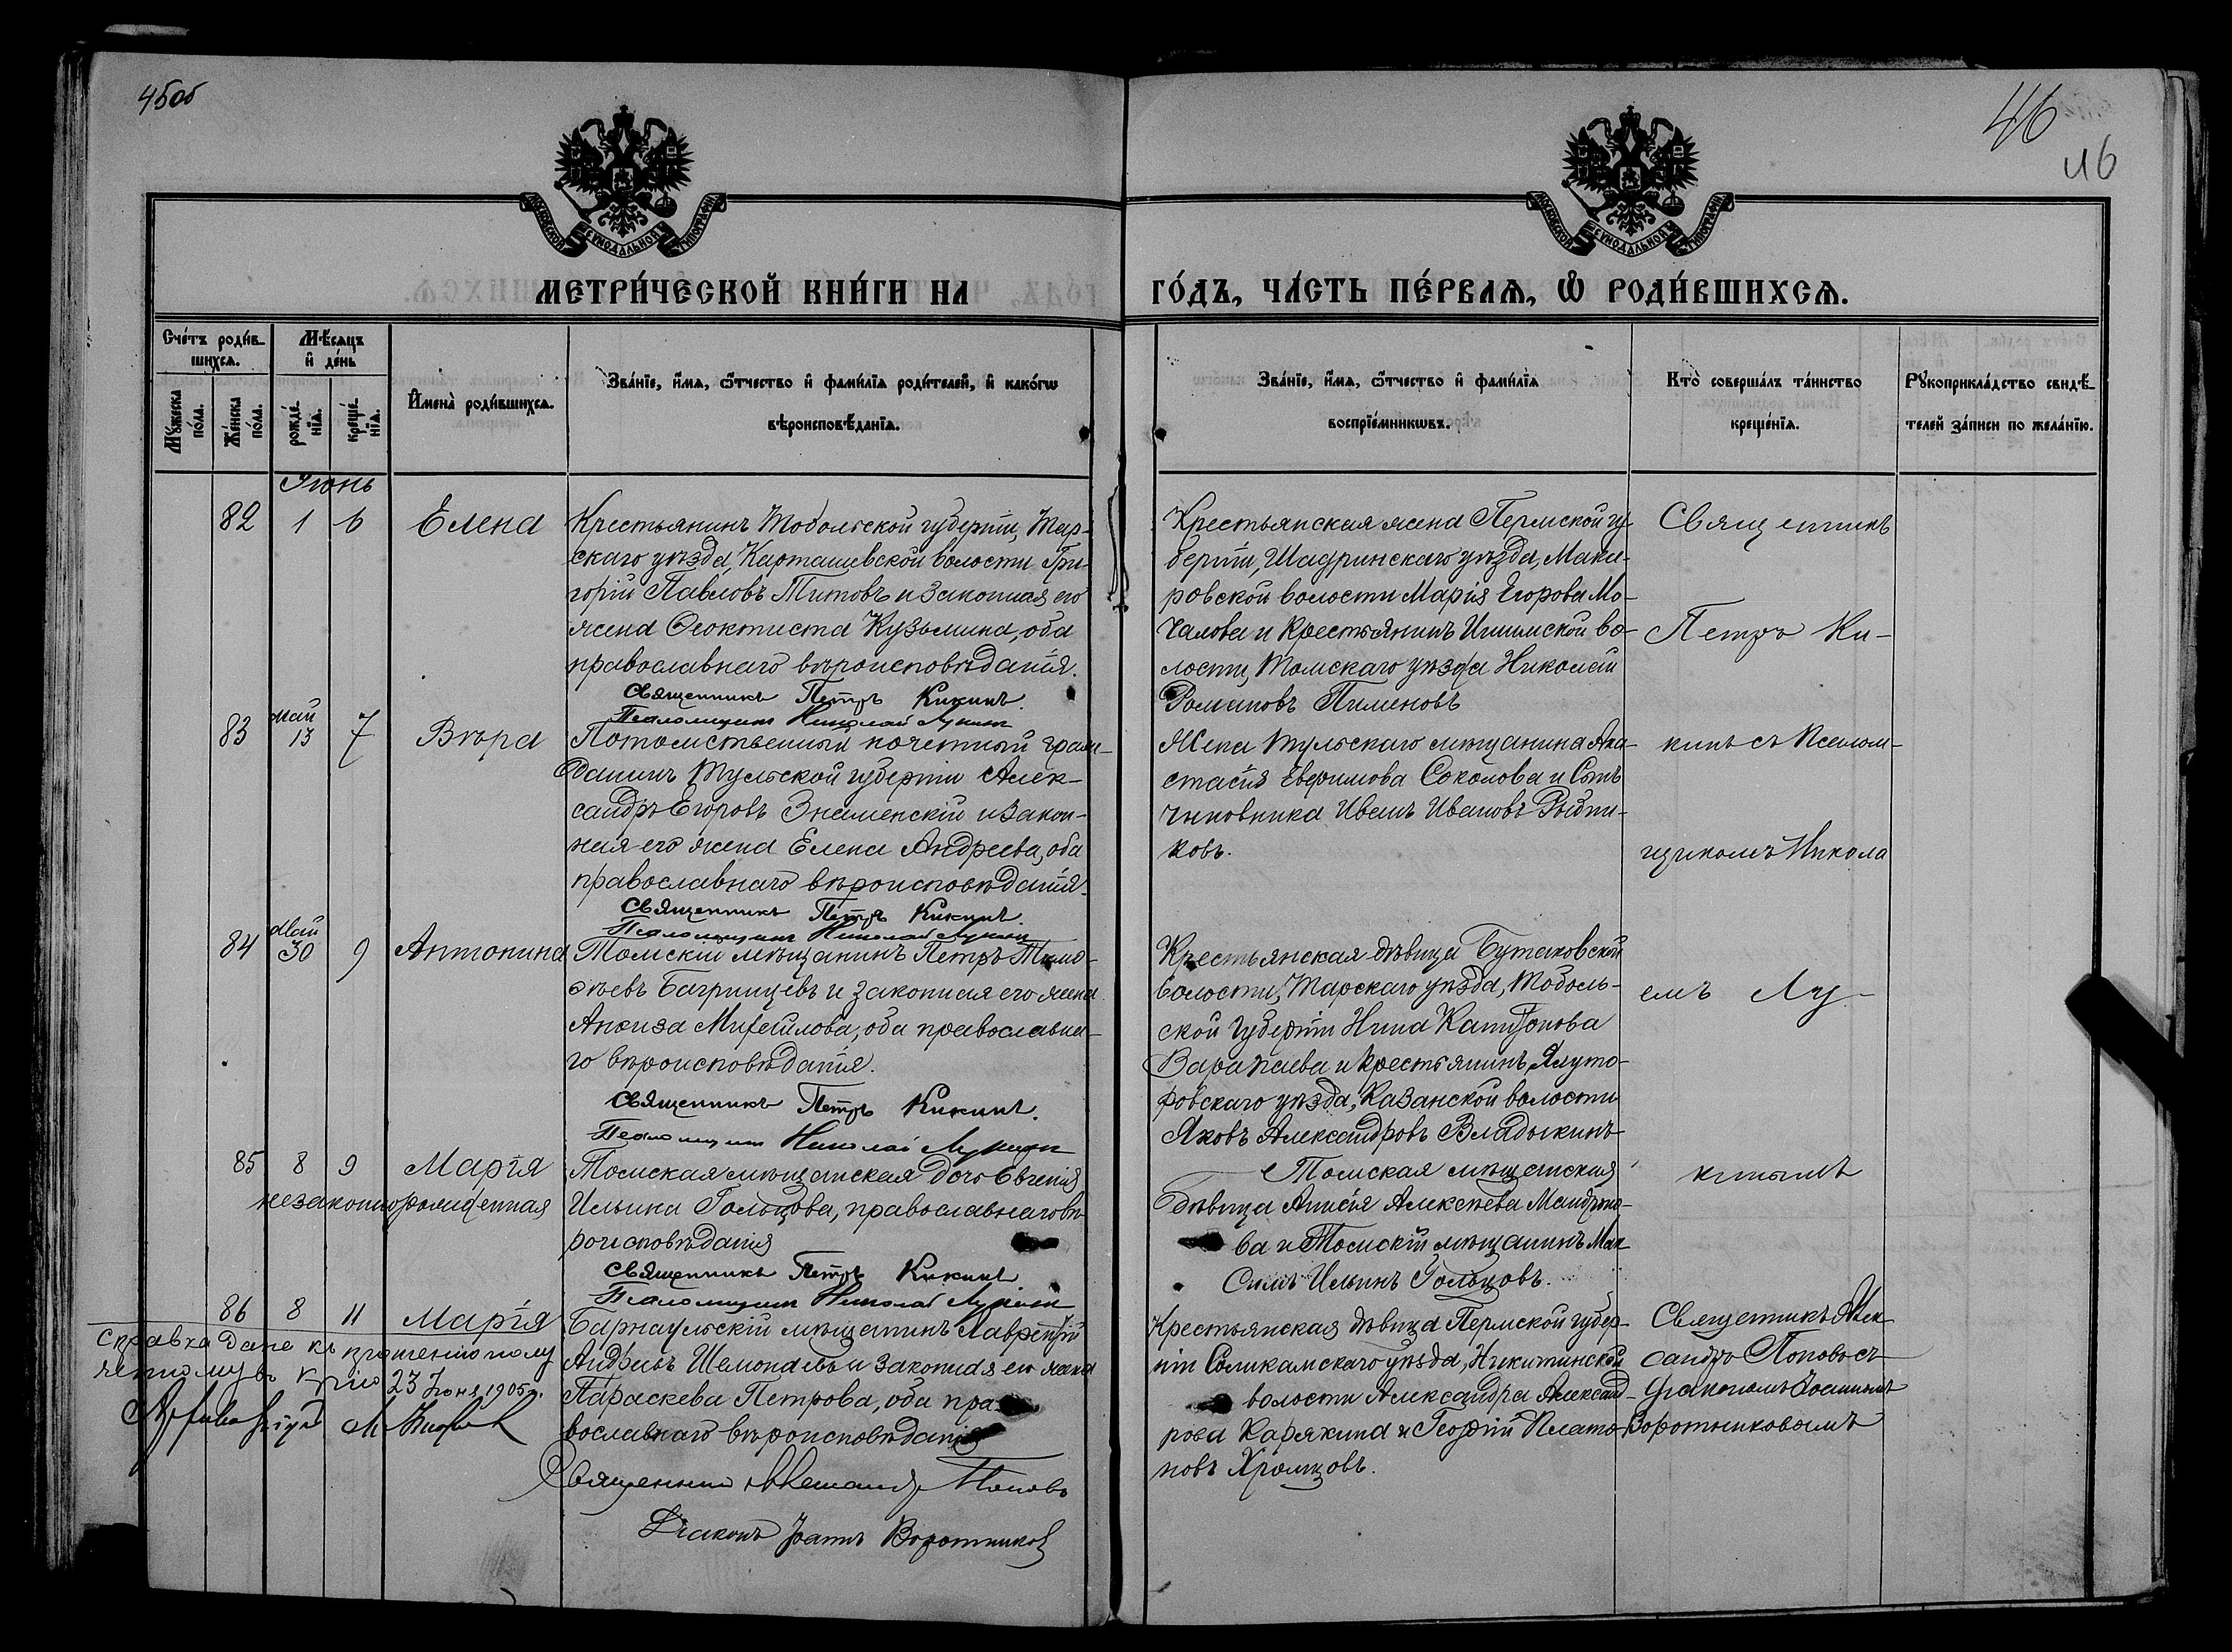 45об
46
46
МОСКОВСКОЙ СѴНОДАЛЬНОЙ ТИПОГРАФІИ
МОСКОВСКОЙ СѴНОДАЛЬНОЙ ТИПОГРАФІИ
МЕТРИ́ЧЕСКОЙ КНИ́ГИ НА
ГО́ДЪ, ЧА́СТЬ ПЕ́РВАѦ, Ѡ҆ РОДИ́ВШИХСѦ.
Сче́тъ роди́в-
шихсѧ.
Мꙋ́жеска по́ла.
Же́нска по́ла.
Мѣ́сѧцъ
и҆ де́нь
рожде́-
нїѧ.
креще́-
нїѧ.
И҆мена̀ роди́вшихсѧ.
Зва́нїе, и҆́мѧ, ѻ҆́тчество и҆ фами́лїѧ роди́телей, и҆ како́гѡ
вѣроисповѣ́данїѧ.
Зва́нїе, и҆́мѧ, ѻ҆́тчество и҆ фами́лїѧ
воспрїе́мникѡвъ.
Кто̀ соверша́лъ та́инство
креще́нїѧ.
Рꙋкоприкла́дство свидѣ́-
телей за́писи по жела́нїю.
Іюнь
82 1 6 Елена
Крестьянинъ Тобольской губерніи, Тар-
скаго уѣзда, Карташевской волости Гри-
горій Павловъ Титовъ и законная его
жена Ѳеоктиста Кузьмина, оба
православнаго вѣроисповѣданія.
Священникъ Петръ Кикинъ.
Псаломщикъ Николай Лукинъ
Крестьянская жена Пермской гу-
берніи, Шадринскаго уѣзда, Мака-
ровской волости Марія Егорова Мо-
чалова и крестьянинъ Ишимской во-
лости, Томскаго уѣзда Николай
Романовъ Пименовъ
Священникъ
Петръ Ки-
май
83 13 7 Вѣра
Потомственный почетный граж-
данинъ Тульской губерніи Алек-
сандръ Егоровъ Знаменскій и закон-
ная его жена Елена Андреева, оба
православнаго вѣроисповѣданія.
Священникъ Петръ Кикинъ.
Псаломщикъ Николай Лукинъ
Жена Тульскаго мѣщанина Ана-
стасія Евфимова Соколова и Сынъ
чиновника Иванъ Ивановъ Рыбни-
ковъ.
кинъ съ Псалом-
щикомъ Никола
май
84 30 9 Антонина
Томскій мѣщанинъ Петръ Тимо-
ѳѣевъ Багринцевъ и законная его жена
Анфиза Михайлова, оба православна-
го вѣроисповѣданія.
Священникъ Петръ Кикинъ.
Псаломщикъ Николай Лукинъ
Крестьянская дѣвица Бутаковской
волости, Тарскаго уѣзда, Тоболь-
ской губерніи Нина Капитонова
Варапаева и крестьянинъ Ялуто-
ровскаго уѣзда, Казанской волости
Яковъ Александровъ Владыкинъ
емъ Лу-
85 8 9 Марія
незаконнорожденная
Томская мѣщанская дочь Евгенія
Ильина Гольцова, православнаго вѣ-
роисповѣданія
Священникъ Петръ Кикинъ
Псаломщикъ Николай Лукинъ
Томская мѣщанская
дѣвица Анисія Алексѣева Мандры
ва и Томскій мѣщанинъ Мак
симъ Ильинъ Гольцовъ.
кинымъ
86 8 11 Марія
Справка дана къ прошенію полу
23 Іюня 1905 г.
Барнаульскій мѣщанинъ Лаврентій
Андреевъ Шемонаевъ и законная его жена
Параскева Петрова, оба пра-
вославнаго вѣроисповѣданія
Священникъ Александръ Поповъ
Діаконъ Іоаннъ Воротниковъ
Крестьянская дѣвица Пермской губер-
ніи Соликамскаго уѣзда, Никитинской
волости Александра Александ-
рова Карякина и Георгій Плато-
новъ Хромцовъ.
Священникъ Алек-
сандръ Поповъ съ
Діакономъ Іоанномъ
Воротниковымъ